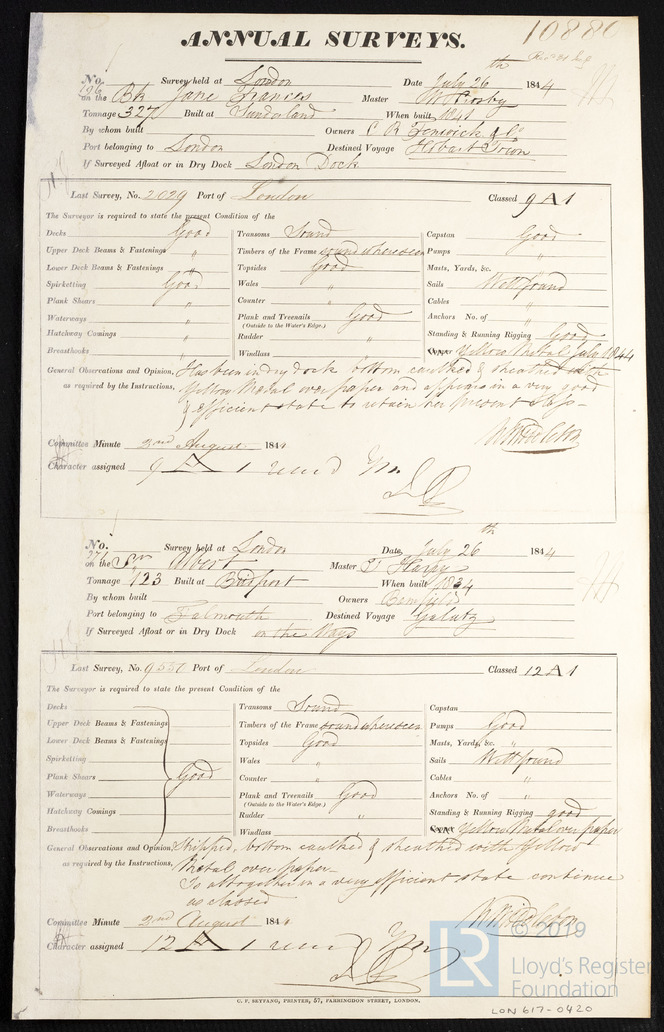 10880
ANNUAL SURVEYS.
No. 126 Survey held at London Date July 26th 1844
on the Bk Jane Frances Master Wm Crosby
Tonnage 327 Built at Sunderland When built 1841
By whom built Owners C R Fenwick & Co
Port belonging to London Destined Voyage Hobart Town
If Surveyed Afloat or in Dry Dock London Dock
Last Survey, No. 2029 Port of London Classed 9 A 1
The Surveyor is required to state the present Condition of the
Decks Good
Upper Deck Beams & Fastenings "
Lower Deck Beams & Fastenings "
Spirketting Good
Plank Shears "
Waterways "
Hatchway Comings "
Breasthooks "
Transoms Sound
Timbers of the Frame sound where seen
Topsides Good
Wales "
Counter "
Plank and Treenails Good
(Outside to the Water's Edge.)
Rudder "
Windlass "
Capstan Good
Pumps "
Masts, Yards, &c. "
Sails Well found
Cables "
Anchors No. of "
Standing & Running Rigging Good
Copper Yellow Metal July 1844
General Observations and Opinion, Has been in dry dock bottom caulked & sheathed with
as required by the Instructions, Yellow Metal over paper and appears in a very good
& efficient state to retain her present Class—
Committee Minute 2nd August 1844
Character assigned 9 A 1
No. 271 Survey held at London Date, July 26th 1844
on the Sr Albert Master T Harpy
Tonnage 123 Built at Bridport When built 1834
By whom built Owners Benfield
Port belonging to Falmouth Destined Voyage Galatz
If Surveyed Afloat or in Dry Dock on the Ways
Last Survey, No. 9550 Port of London Classed 12 A 1
The Surveyor is required to state the present Condition of the
Decks
Upper Deck Beams & Fastenings
Lower Deck Beams & Fastenings
Spirketting
Plank Shears Good
Waterways
Hatchway Comings
Breasthooks
Transoms Sound
Timbers of the Frame sound where seen
Topsides Good
Wales "
Counter "
Plank and Treenails Good
(Outside to the Water's Edge.)
Rudder "
Windlass "
Capstan
Pumps Good
Masts, Yards, &c. "
Sails Well found
Cables "
Anchors No. of "
Standing & Running Rigging good
Copper Yellow Metal over paper
General Observations and Opinion, Stripped, bottom caulked & sheathed with Yellow
as required by the Instructions, Metal over paper—
Is altogether in a very efficient state continue
as classed
Committee Minute 2nd August 1844
Character assigned 12 A 1
© 2019
LR Lloyd's Register
Foundation
C. F. SEYFANG, PRINTER, 57, FARRINGDON STREET, LONDON.
LON617-0420